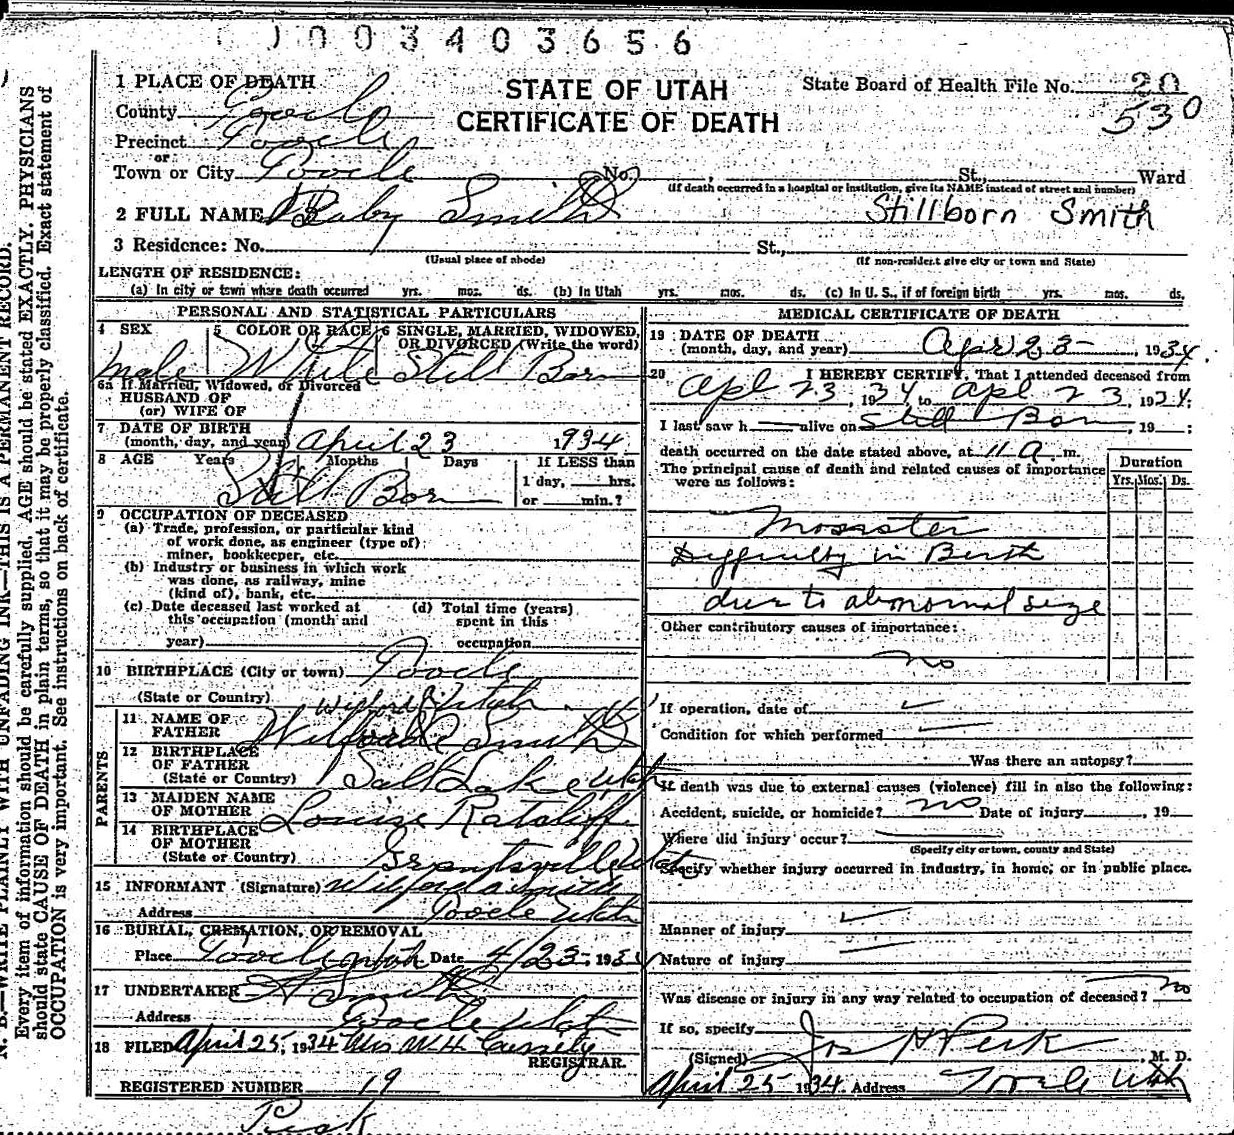 003403656
STATE OF UTAH
CERTIFICATE OF DEATH
State Board of Health File No. 20
530
1 PLACE OF DEATH
County Tooele
Precinct Tooele
or
Town or City Tooele No. , St., Ward
(If death occurred in a hospital or institution, give its NAME instead of street and number)
2 FULL NAME Baby Smith Stillborn Smith
3 Residence: No. St.,
(Usual place of abode) (If non-resident give city or town and State)
LENGTH OF RESIDENCE:
(a) In city or town where death occurred yrs. mos. ds. (b) In Utah yrs. mos. ds. (c) In U. S., if of foreign birth yrs. mos. ds.
PERSONAL AND STATISTICAL PARTICULARS
4 SEX 5 COLOR OR RACE 6 SINGLE, MARRIED, WIDOWED,
OR DIVORCED (Write the word)
male White Still Born
6a If Married, Widowed, or Divorced
HUSBAND OF
(or) WIFE OF
7 DATE OF BIRTH
(month, day, and year) April 23 1934
8 AGE Years Months Days If LESS than
1 day, hrs.
or min.?
Still Born
9 OCCUPATION OF DECEASED
(a) Trade, profession, or particular kind
of work done, as engineer (type of)
miner, bookkeeper, etc.
(b) Industry or business in which work
was done, as railway, mine
(kind of), bank, etc.
(c) Date deceased last worked at (d) Total time (years)
this occupation (month and spent in this
year) occupation
10 BIRTHPLACE (City or town) Tooele
(State or Country) Utah
PARENTS
11 NAME OF
FATHER Smith
12 BIRTHPLACE
OF FATHER
(State or Country) Salt Lake Utah
13 MAIDEN NAME
OF MOTHER Louise Ratcliff
14 BIRTHPLACE
OF MOTHER
(State or Country) Grantsville Utah
15 INFORMANT (Signature) Wilford A Smith
Address Tooele Utah
16 BURIAL, CREMATION, OR REMOVAL
Place Tooele Utah Date 4/23 1934
17 UNDERTAKER Smith
Address Tooele Utah
18 FILED April 25, 1934 Mrs W.H. Cassity
REGISTRAR.
REGISTERED NUMBER 19
Peak
MEDICAL CERTIFICATE OF DEATH
19 DATE OF DEATH
(month, day, and year) Apr 23 , 1934.
20 I HEREBY CERTIFY, That I attended deceased from
Apl 23, 1934 to Apl 23, 1934;
I last saw h alive on Still Born, 19 ;
death occurred on the date stated above, at 11 A. m.
The principal cause of death and related causes of importance
were as follows:
Duration
Yrs. Mos. Ds.
Monster
Difficulty in Birth
due to abnormal size
Other contributory causes of importance:
no
If operation, date of
Condition for which performed
Was there an autopsy?
If death was due to external causes (violence) fill in also the following:
Accident, suicide, or homicide? no Date of injury , 19
Where did injury occur?
(Specify city or town, county and State)
Specify whether injury occurred in industry, in home, or in public place.
Manner of injury
Nature of injury
Was disease or injury in any way related to occupation of deceased? no
If so, specify
(Signed) Jos H Peck , M. D.
April 25 1934. Address Tooele Utah
N. B.—WRITE PLAINLY WITH UNFADING INK—THIS IS A PERMANENT RECORD.
Every item of information should be carefully supplied. AGE should be stated EXACTLY. PHYSICIANS
should state CAUSE OF DEATH in plain terms, so that it may be properly classified. Exact statement of
OCCUPATION is very important. See instructions on back of certificate.